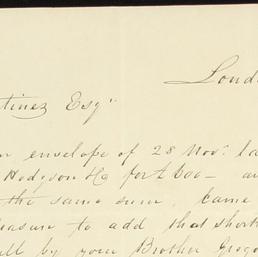 Lond
tinez Esqr
envelope of 28 Novr. la
Hodgson for £600 –
the same sum, came
easure to add that short
ll by your Brother Grego